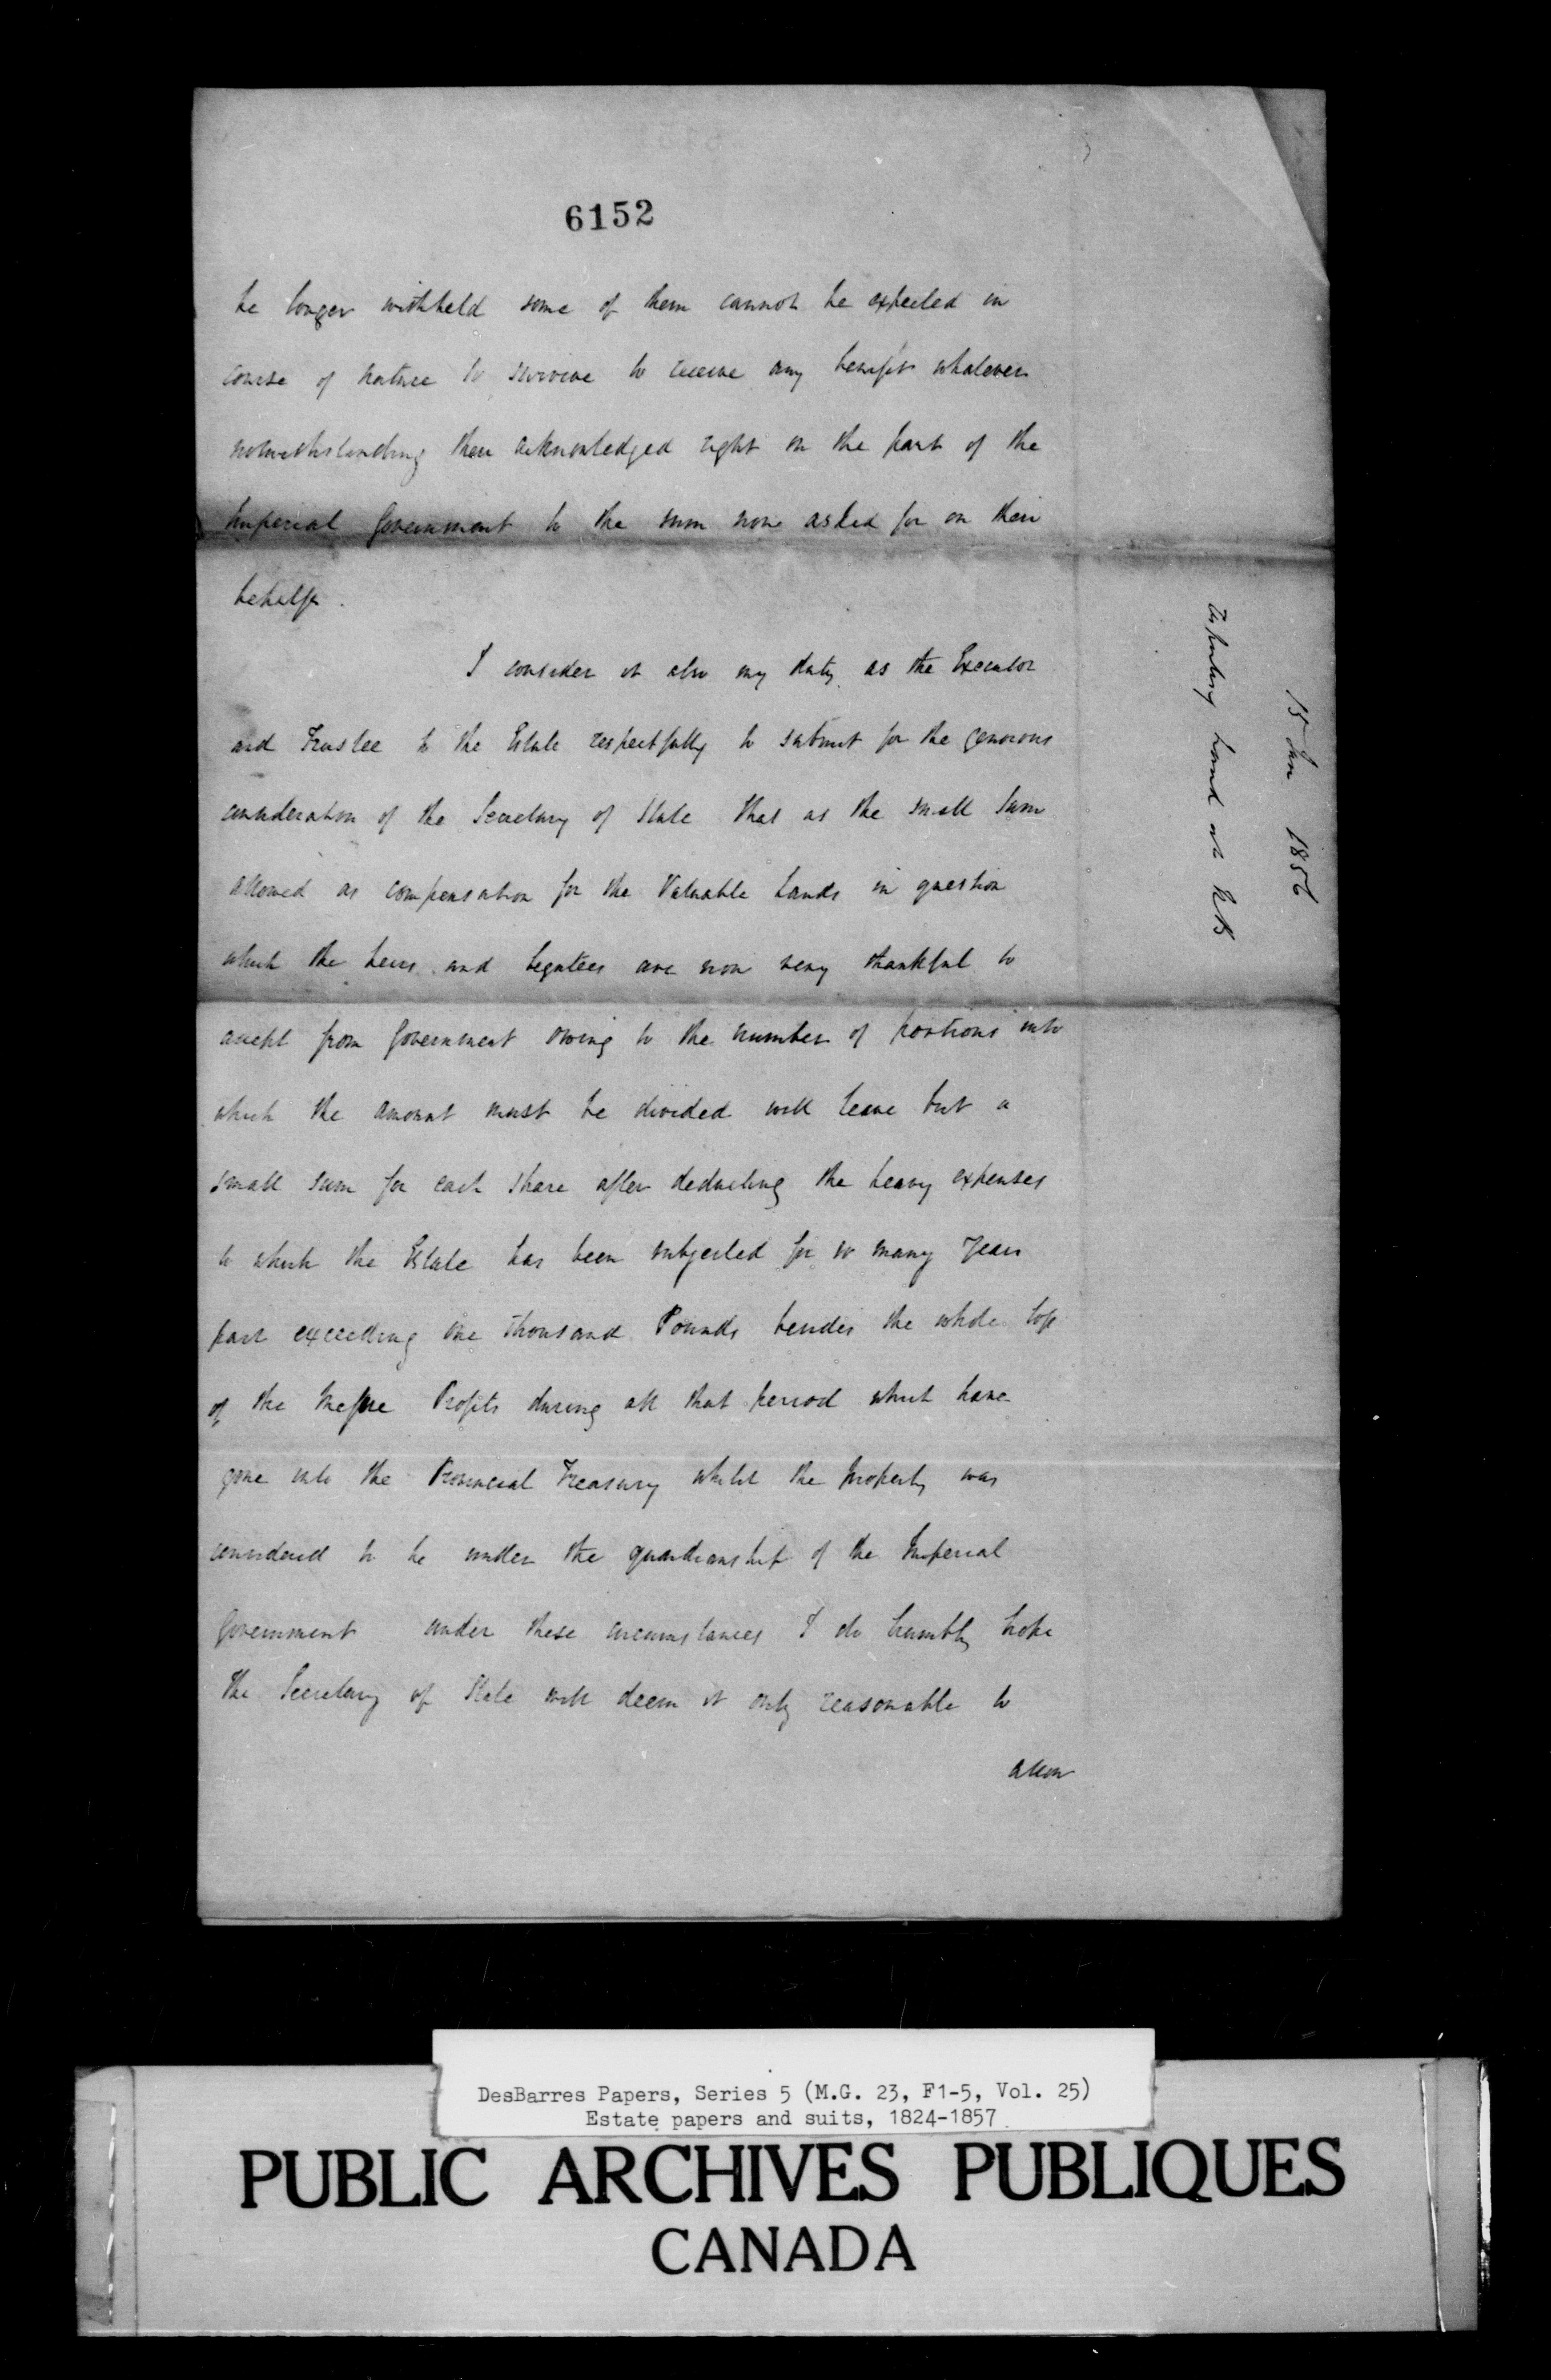 6152
be longer withheld some of them cannot be expected in
course of nature to survive to receive any benefit whatever
notwithstanding their acknowledged right on the part of the
Imperial Government to the sum now asked for on their
behalf.
I consider it also my duty as the Executor
and Trustee to the Estate respectfully to submit for the generous
consideration of the Secretary of State that as the small sum
allowed as compensation for the Valuable Lands in question
which the heirs and legatees are now very thankful to
accept from Government owing to the number of portions into
which the amount must be divided will leave but a
small sum for each share after deducting the heavy expenses
to which the Estate has been subjected for so many years
past exceeding one thousand Pounds besides the whole loss
of the Mesne Profits during all that period which have
gone into the Provincial Treasury whilst the property was
considered to be under the guardianship of the Imperial
Government under these circumstances I do humbly hope
the Secretary of State will deem it only reasonable to
allow
15 Jan 1856
Land at
DesBarres Papers, Series 5 (M.G. 23, F1-5, Vol. 25)
Estate papers and suits, 1824-1857
PUBLIC ARCHIVES PUBLIQUES
CANADA